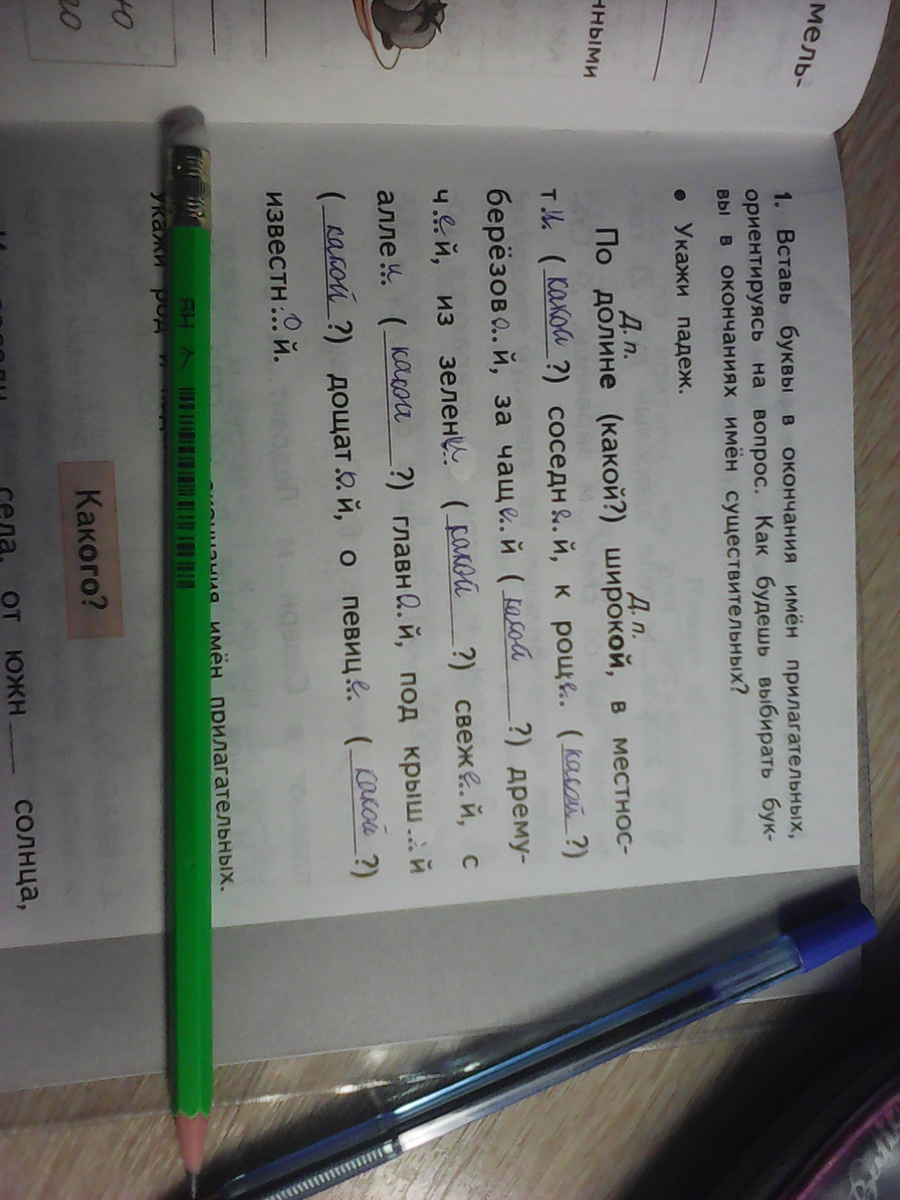 мель-
нными
ю
го
1. Вставь буквы в окончания имён прилагательных,
ориентируясь на вопрос. Как будешь выбирать бук-
вы в окончаниях имён существительных?
• Укажи падеж.
Д. п. Д. п.
По долине (какой?) широкой, в местнос-
ти (какой?) соседней, к роще (какой?)
берёзовой, за чащей (какой?) дрему-
чей, из зелени (какой?) свежей, с
аллеи (какой?) главной, под крыш...й
(какой?) дощатой, о певице (какой?)
известной.
окончания имён прилагательных.
укажи род и
Какого?
села, от южн___ солнца,
ЯН